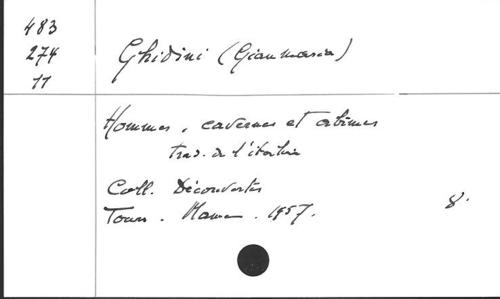 483
274
11
Ghidini (Gianmaria)
Hommes, cavernes et abîmes
trad. de l'italie
Coll. Découvertes
Tours. Mame. 1957.
8°